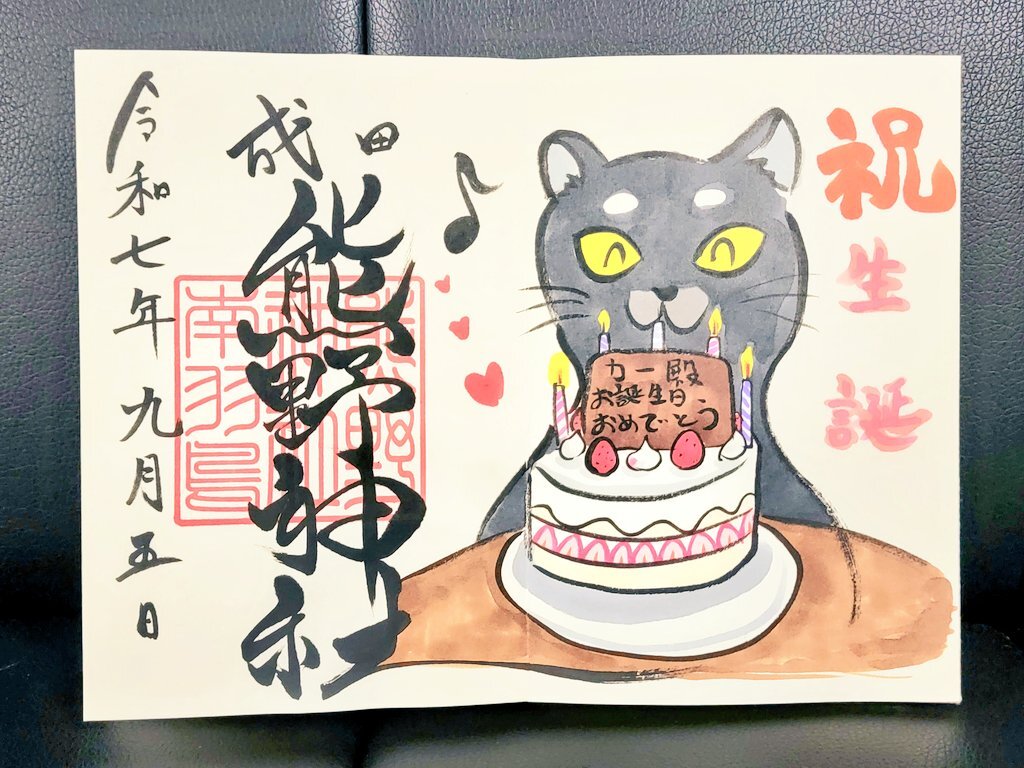 祝
生
誕
カー殿
お誕生日
おめでとう
成田
熊野神社
南羽鳥
令和七年 九月五日